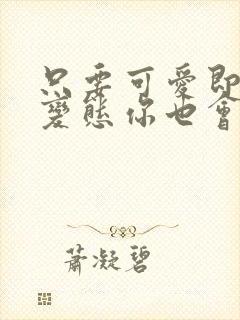 只要可愛即
變態你也會
蕭凝碧